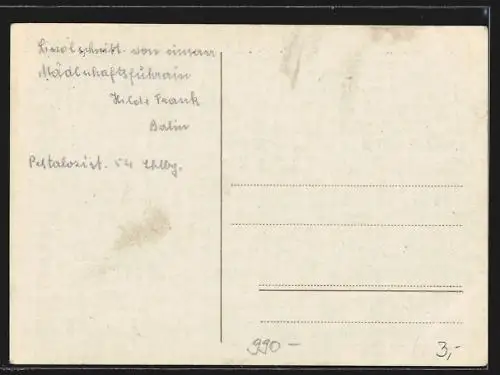 Linolschnitt von einer
Mädlschaftsführerin
Hilde Frank
Berlin
Pestalozzist. 54 Chlbg.
990-
3,-